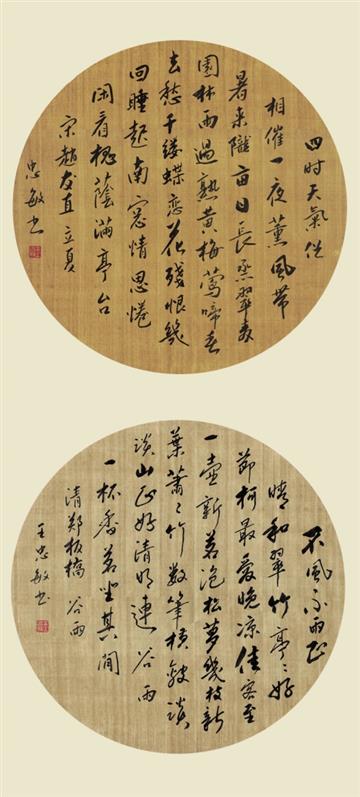 四时天氣促
相催一夜薰風带
暑来陇亩日長蒸翠麦
園林雨過熟黄梅莺啼春
去愁千缕蝶恋花残恨幾
回睡起南窓情思倦
闲看槐蔭满亭台
宋趙友直立夏
忠敏书
不風不雨正
晴和翠竹亭〻好
節柯最爱晚凉佳客至
一壶新茗泡松萝幾枝新
葉萧〻竹数筆横皴淡
淡山正好清明連谷雨
一杯香茗坐其间
清郑板橋 谷雨
王忠敏书